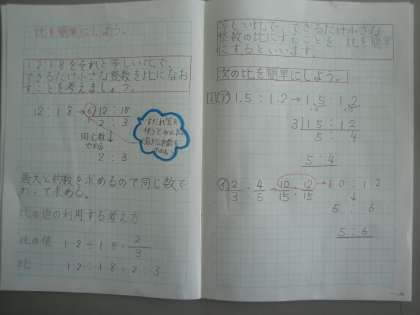 比を簡単にしよう。
12:18をそれと等しい比で、
できるだけ小さな整数を比になお
すことを考えましょう。
12:18→6)12:18
2:3
同じ数
でわる
2:3
最大公約数を求めるので同じ数で
わって求める。
比の値の利用する考え方
比の値 12÷18=2/3
比 12:18=2:3
等しい比で、できるだけ小さな
整数の比にすることを比を簡単
にするといいます。
次の比を簡単にしよう。
ア)1.5:1.2→15:12
3)15:12
5:4
5:4
イ)2/3:4/5→10/15:12/15→10:12
5:6
5:6